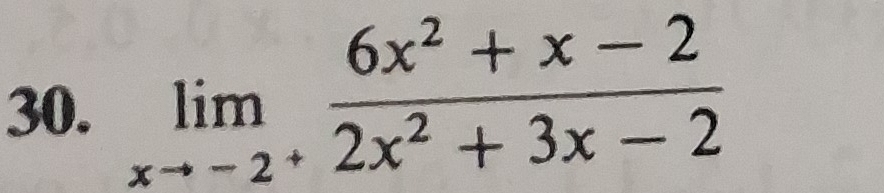 30. lim_{x→-2⁺} \frac{6x² + x − 2}{2x² + 3x − 2}